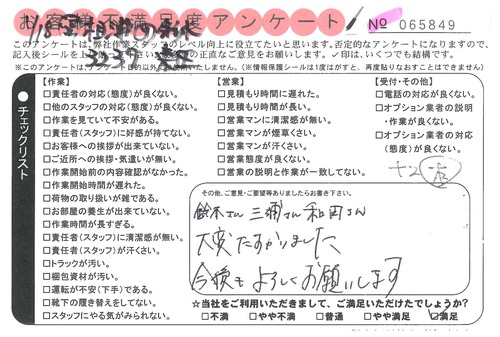 お客様不満足度アンケート
№ 065849
このアンケートは、弊社作業スタッフのレベル向上に役立てたいと思います。否定的なアンケートになりますので、
記入後シールを上 正直なご意見をお願いします。✓印は、いくつでも結構です。
※このアンケートは、アンケート目的以外 使用いたしません。(※情報保護シールは1度がすと、再度貼りなおすことはできません)
チェックリスト
【作業】
□責任者の対応(態度)が良くない。
□他のスタッフの対応(態度)が良くない。
□作業を見ていて不安がある。
□責任者(スタッフ)に好感が持てない。
□お客様への挨拶が出来ていない。
□ご近所への挨拶・気遣いが無い。
□作業開始前の内容確認がなかった。
□作業開始時間が遅れた。
□荷物の取り扱いが雑である。
□お部屋の養生が出来ていない。
□作業時間が長すぎる。
□責任者(スタッフ)に清潔感が無い。
□責任者(スタッフ)が汗くさい。
□トラックが汚い。
□梱包資材が汚い。
□運転が不安(下手)である。
□靴下の履き替えをしてない。
□スタッフにやる気がみられない。
【営業】
□見積もり時間に遅れた。
□見積もり時間が長い。
□営業マンに清潔感が無い。
□営業マンが煙草くさい。
□営業マンが汗くさい。
□営業態度が良くない。
□営業の説明と作業が一致してない。
【受付・その他】
□電話の対応が良くない。
□オプション業者の説明
・作業が良くない。
□オプション業者の対応
(態度)が良くない。
その他、ご意見・ご要望等ありましたらお書き下さい。
鈴木さん 三浦さん 和田さん
大変たすかりました
今後もよろしくお願いします
☆当社をご利用いただきまして、ご満足いただけたでしょうか?
□不満 □やや不満 □普通 □やや満足 ☑満足